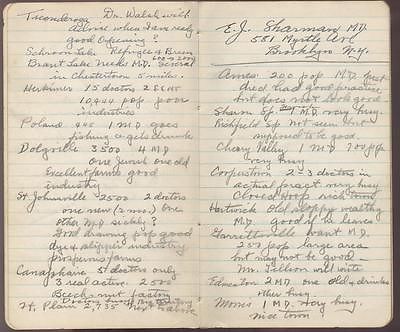 Ticonderoga Dr. Walsh will
advise when I am ready
good opening?
Schroon Lake Refugee & Breen
600 or 700
Brant Lake needs M.D. Several
in Chestertown 5 miles.
Herkimer 15 doctors 2 EENT
10,444 pop poor
industries
Poland 1 M D goes
fishing & gets drunk
Dolgville 3500 4 MD
one Jewish one old
Excellent farms good
industry
St. Johnsville 2500 2 doctors
one new (2 mos) one
other M.D. sickly?
Good drawing pop good
dye & slipper industry
prosperous farms
Canajoharie 5 doctors only
3 real active. 2500
Beechnut factory
Ft. Plain 2,755
E. J. Sherman M.D.
581 Myrtle Ave
Brooklyn N.Y.
Ames 200 pop M D just
died had good practice
but does not look good
Sharon Sp. M.D. very busy.
Richfield Sp not seen but
supposed to be good.
Cherry Valley 1 M D 700 pop
very busy
Cooperstown 2-3 doctors in
actual pract very busy
Closed Hosp rich town
Hartwick old sloppy wealthy
M.D. Good if he leaves.
Garrattsville want M.D.
250 pop large area
but may not be good -
Mr. will write
Edmeston 2 M D one old & drinks
other busy.
Morris 1 M.D. very busy.
nice town